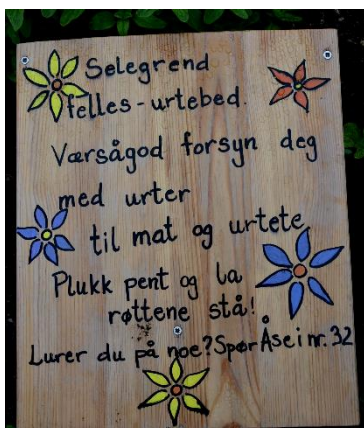 Selegrend
felles-urtebed.
Værsågod forsyn deg
med urter
til mat og urtete
Plukk pent og la
røttene stå!
Lurer du på noe? Spør Åse i nr. 32